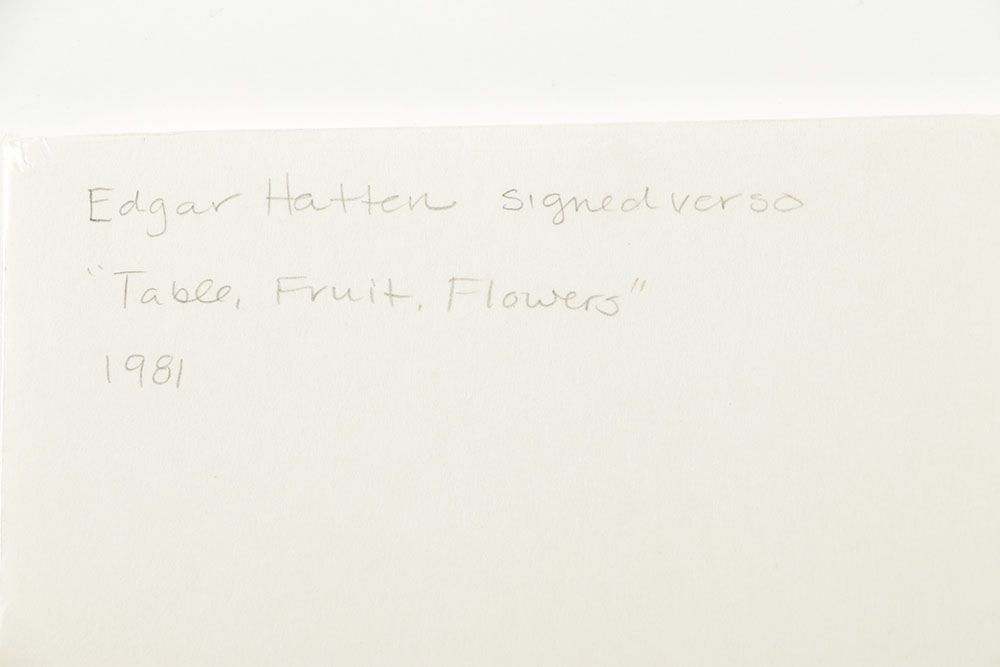 Edgar Hatten signed verso
"Table, Fruit, Flowers"
1981